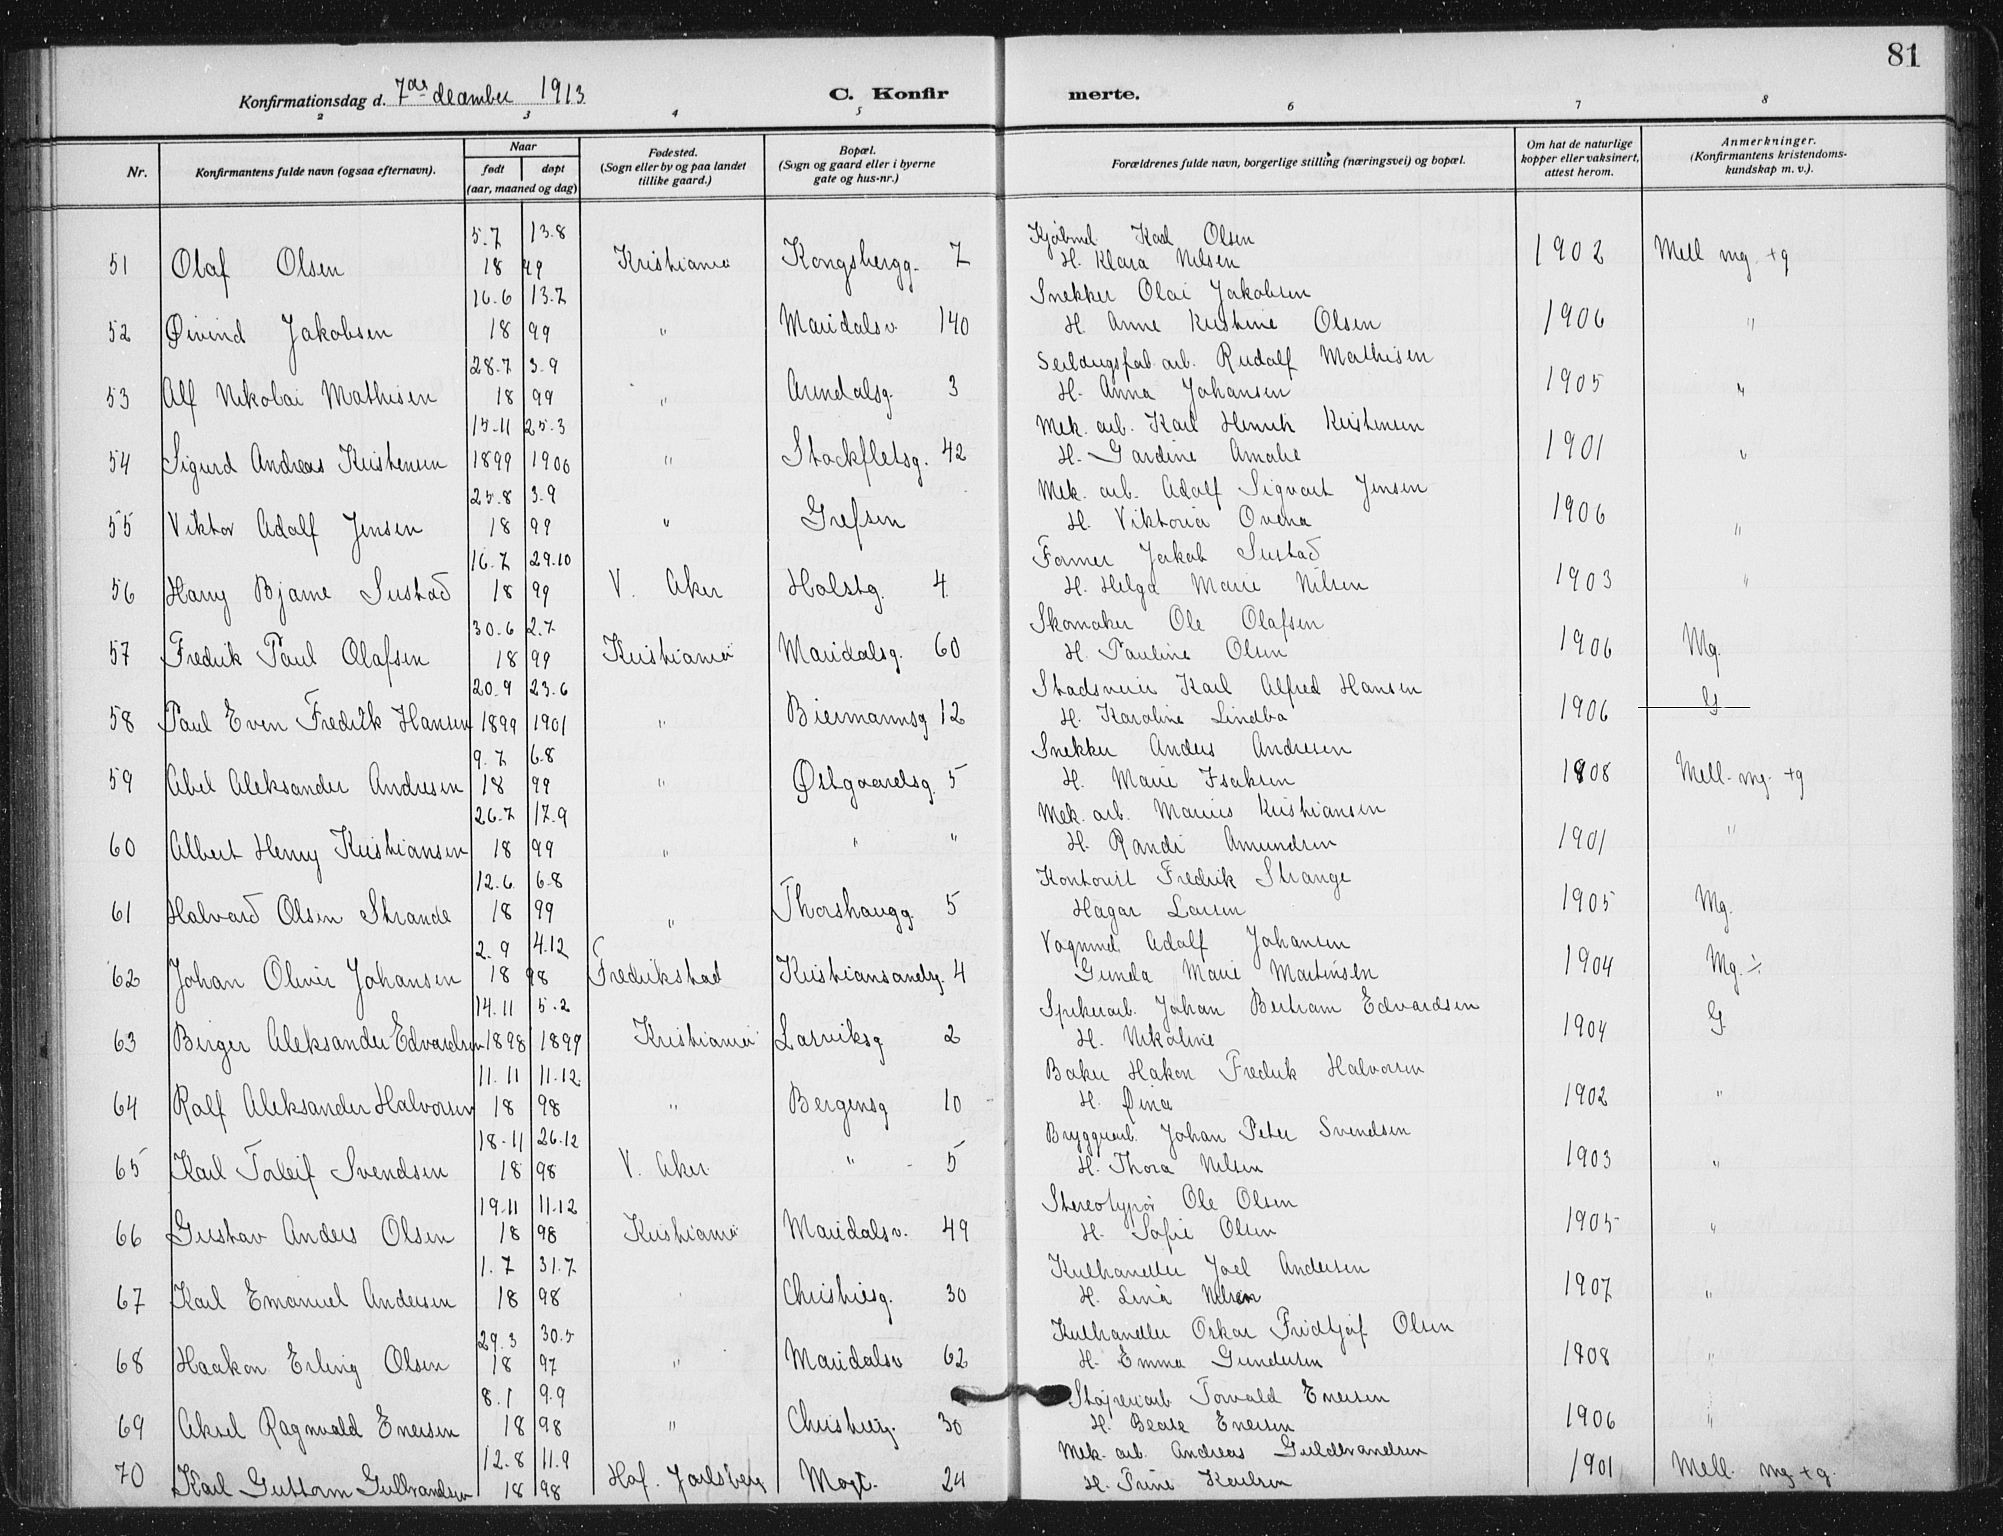 81
Konfirmationsdag d. 7de december 1913 C. Konfirmerte.
2 3 4 5 6 7 8
Nr. Konfirmantens fulde navn (ogsaa efternavn). Naar født døpt (aar, maaned og dag) Fødested. (Sogn eller by og paa landet tillike gaard.) Bopæl. (Sogn og gaard eller i byerne gate og hus-nr.) Forældrenes fulde navn, borgerlige stilling (næringsvei) og bopæl. Om hat de naturlige kopper eller vaksinert, attest herom. Anmerkninger. (Konfirmantens kristendoms-kundskap m. v.).
5.7 13.8 Kjøbmd Karl Olsen
51 Olaf Olsen 18 99 Kristiania Kongsbergg. 7 H. Klara Nilsen 1902 Mell mg. + g
16.6 13.7 Snekker Olai Jakobsen
52 Øivind Jakobsen 18 99 " Maridalsv. 140 H. Anne Kristine Olsen 1906 "
28.7 3.9 Seildugsfab. arb. Rudolf Mathisen
53 Alf Nikolai Mathisen 18 99 " Arendalsg. 3 H. Anna Johansen 1905 "
15.11 25.3 Mek. arb. Karl Henrik Kristensen
54 Sigurd Andreas Kristensen 1899 1900 " Stockfletsg. 42 H. Gardine Amalie 1901 "
25.8 3.9 Mek. arb. Adolf Sigvart Jensen
55 Viktor Adolf Jensen 18 99 " Grefsen H. Viktoria Ovena 1906 "
16.7 29.10 Former Jakob Sustad
56 Harry Bjarne Sustad 18 99 V. Aker Holstg. 4 H. Helga Marie Nilsen 1903 "
30.6 2.7 Skomaker Ole Olafsen
57 Fredrik Paul Olafsen 18 99 Kristiania Maridalsg. 60 H. Pauline Olsen 1906 Mg.
20.9 23.6 Karl Alfred Hansen
58 Paul Even Fredrik Hansen 1899 1901 " Biermannsg 12 H. Karoline Lindbo 1906 G
9.7 6.8 Snekker Anders Andresen
59 Abel Aleksander Andresen 18 99 " Østgaardsg. 5 H. Marie Isaksen 1908 Mell. mg. + g
26.7 17.9 Mek. arb. Marius Kristiansen
60 Albert Henry Kristiansen 18 99 " " " H. Randi Amundsen 1901 "
12.6 6.8 Kontorist Fredrik Strange
61 Halvard Olsen Strande 18 99 " Thorshaugg. 5 Hagar Larsen 1905 Mg.
2.9 4.12 Vognmd Adolf Johansen
62 Johan Oliver Johansen 18 98 Fredrikstad Kristiansandsg. 4 Gunda Marie Martinsen 1904 Mg. ÷
14.11 5.2 Spikerarb. Johan Bertram Edvardsen
63 Birger Aleksander Edvardsen 1898 1899 Kristiania Larviksg 2 H. Nikoline 1904 G.
11.11 11.12 Baker Hakon Fredrik Halvorsen
64 Ralf Aleksander Halvorsen 18 98 " Bergensg 10 H. Dina 1902 "
18.11 26.12 Bryggearb. Johan Peter Svendsen
65 Karl Torleif Svendsen 18 98 V. Aker " - 5 H. Thora Nilsen 1903 "
19.11 11.12 Stereotypør Ole Olsen
66 Gustav Anders Olsen 18 98 Kristiania Maridalsv. 49 H. Sofie Olsen 1905 "
1.7 31.7 Kulhandler Joel Andersen
67 Karl Emanuel Andersen 18 98 " Christiesg. 30 H. Lina Nilsen 1907 "
29.3 30.5 Kulhandler Oskar Fridtjof Olsen
68 Haakon Erling Olsen 18 97 " Maridalsv 62 H. Emma Gundersen 1908 "
8.1 9.9 Støperiarb Torvald Enersen
69 Aksel Ragnvald Enersen 18 98 " Christiesg. 30 H. Beate Enersen 1906 "
12.8 11.9 Mek. arb. Andreas Guldbrandsen
70 Karl Guttorm Gulbrandsen 18 98 Hof. Jarlsberg Mogt. 24 H. Trine Karlsen 1901 Mell. mg + g.